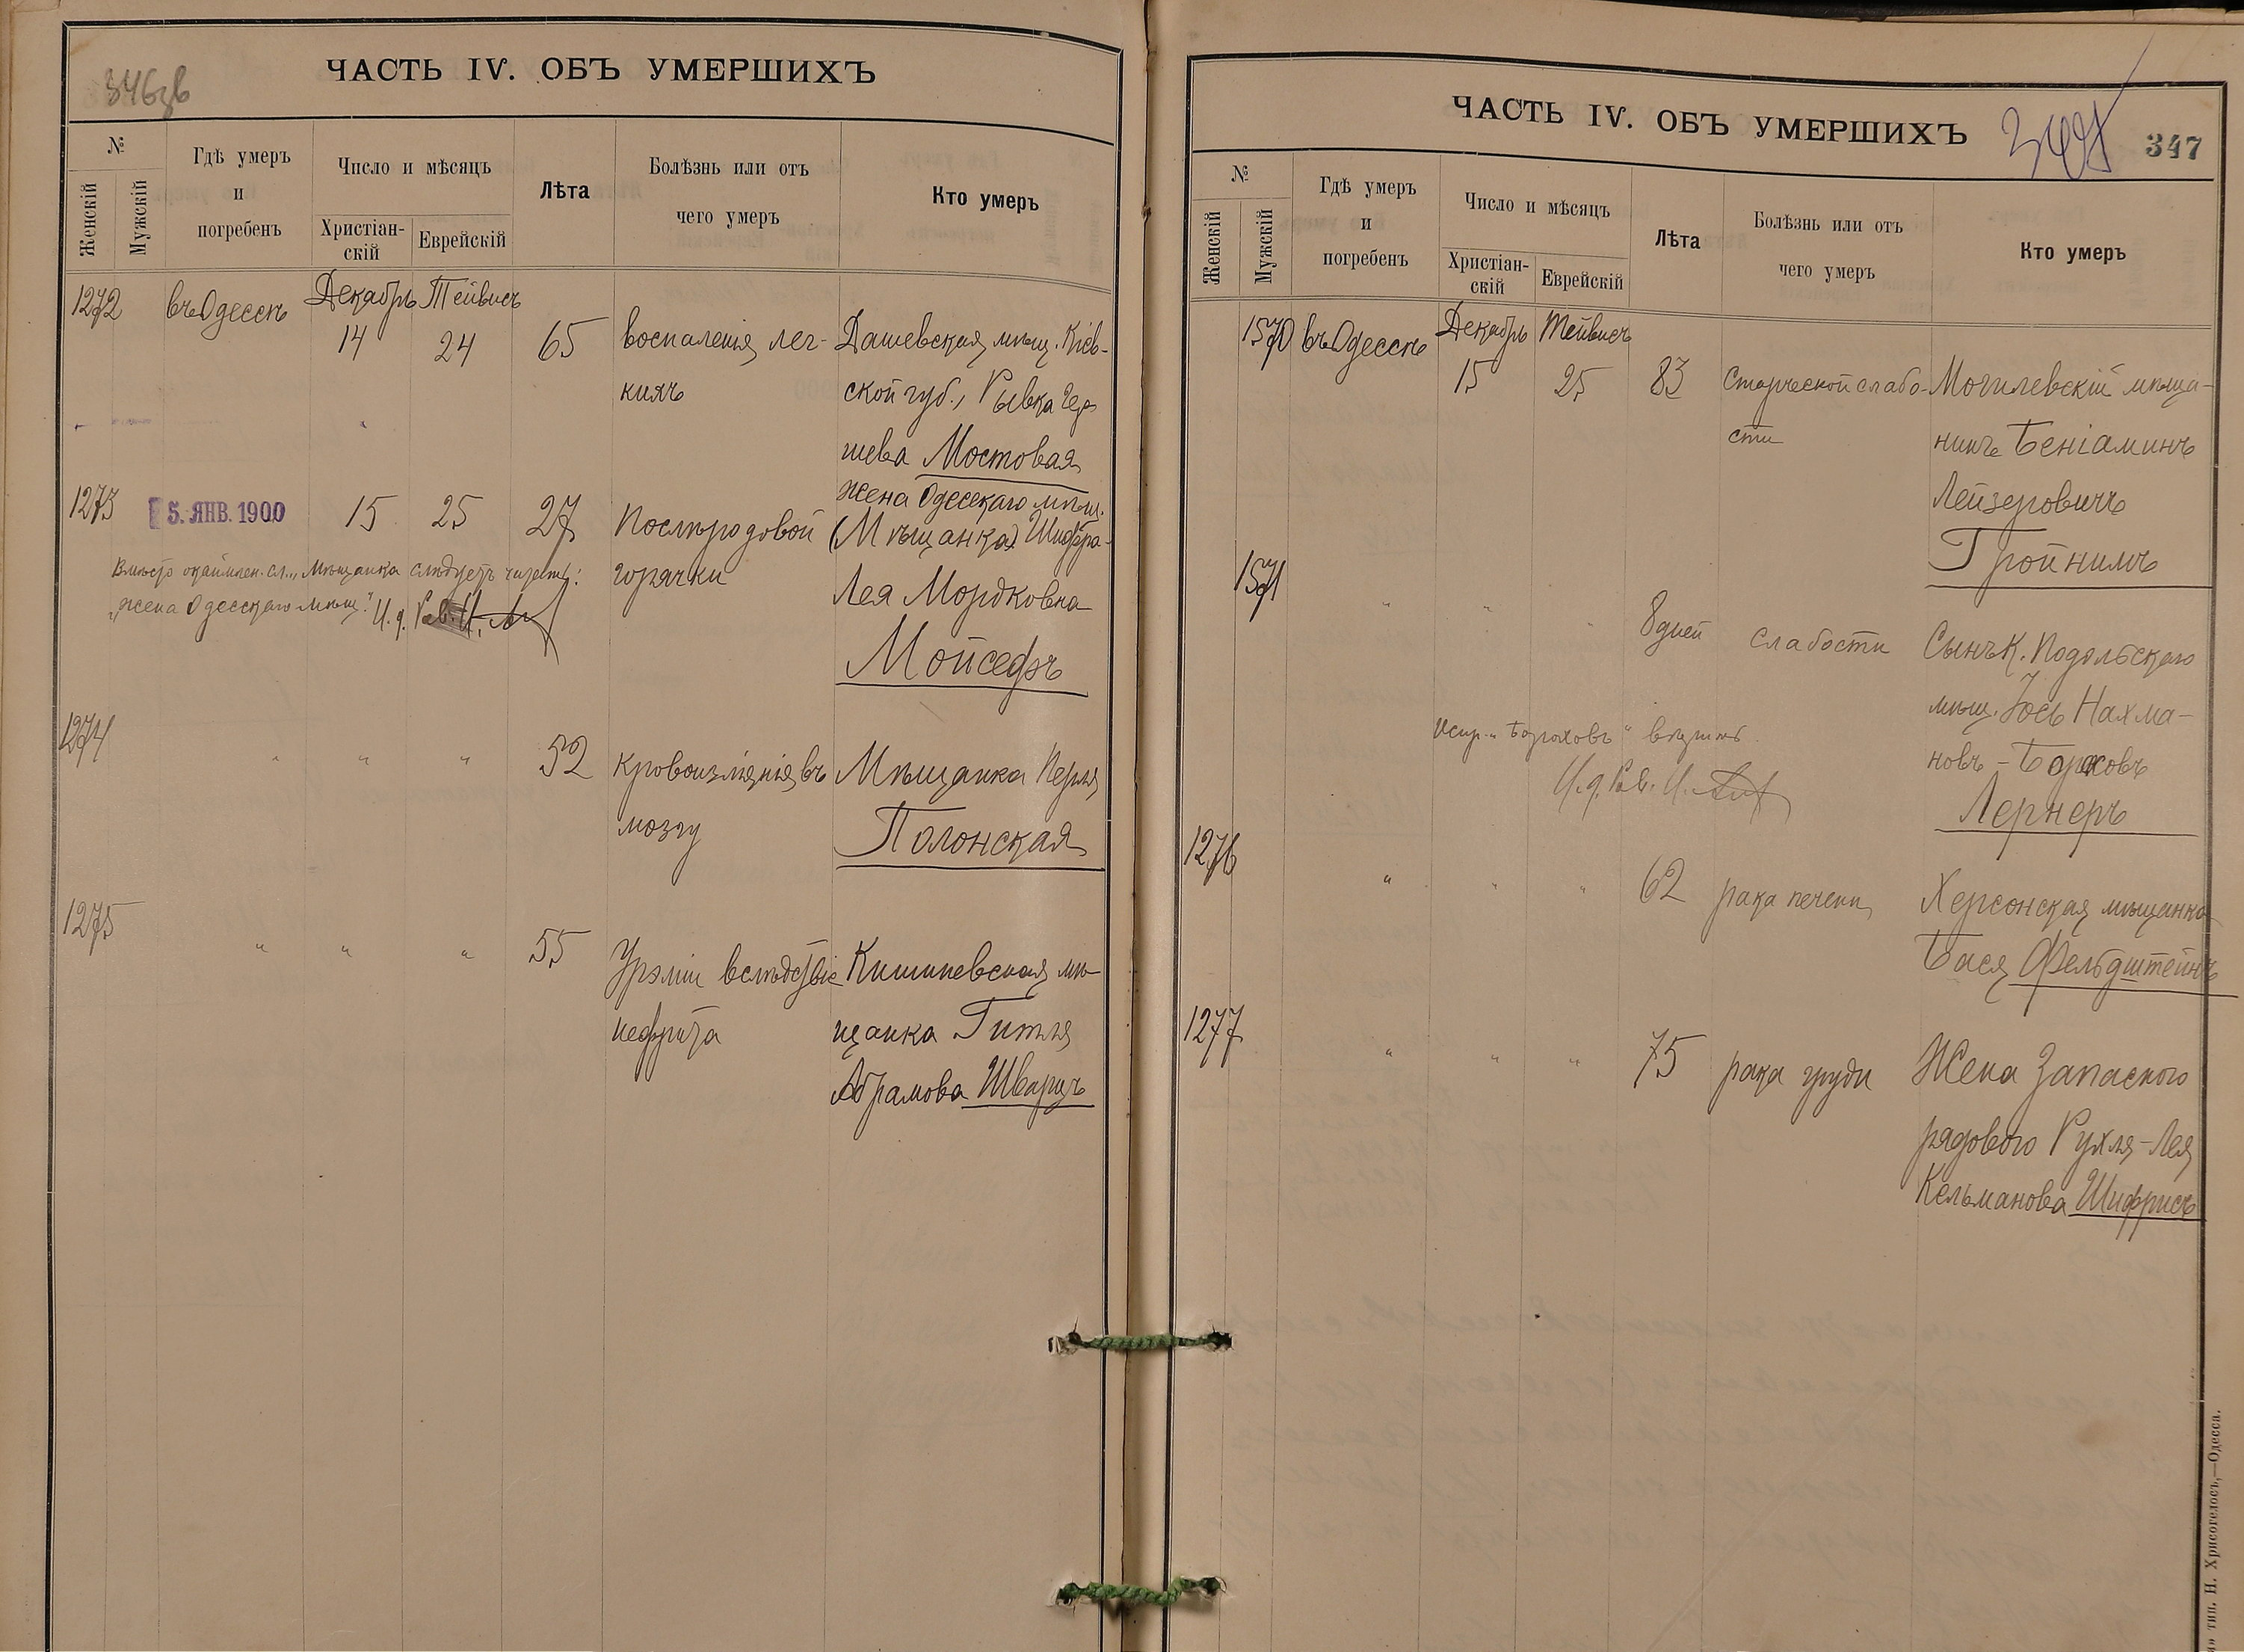 346об
ЧАСТЬ IV. ОБЪ УМЕРШИХЪ
№
Женскій
Мужскій
Гдѣ умеръ
и
погребенъ
Число и мѣсяцъ
Христіан-
скій
Еврейскій
Лѣта
Болѣзнь или отъ
чего умеръ
Кто умеръ
1272 въ Одессѣ Декабрь Тейвисъ
14 24 65 воспаленія лег- Дашевская мѣщ. Кіев-
кихъ ской губ., Рывка Гер
шева Мостовая
жена Одесскаго мѣщ.
1273 5. ЯНВ. 1900 15 25 27 Послѣродовой (Мѣщанка) Шифра-
Вмѣсто окаймлен. сл. „Мѣщанка слѣдуетъ читать: горячки Лея Мордковна
„жена Одесскаго мѣщ." И. д. Рав. И.
Мойсефъ
1274 " " " 52 кровоизліянія въ Мѣщанка Перля
мозгу Полонская
1275 " " " 55 Урэміи вслѣдствіе Кишиневская мѣ
нефрита щанка Гитля
Абрамова Шварцъ
ЧАСТЬ IV. ОБЪ УМЕРШИХЪ
347
347
№
Женскій
Мужскій
Гдѣ умеръ
и
погребенъ
Число и мѣсяцъ
Христіан-
скій
Еврейскій
Лѣта
Болѣзнь или отъ
чего умеръ
Кто умеръ
1570 въ Одессѣ Декабрь Тейвисъ
15 25 83 Старческой слабо- Могилевскій мѣща-
сти нинъ Беніаминъ
Лейзеровичъ
Гройнимъ
1571 " " " 8 дней слабости Сынъ К. Подольскаго
мѣщ. Іось Нахма-
Испр. „Бороховъ" вѣрить.
новъ-Бороховъ
И. д. Рав. И.
Лернеръ
1276 " " " 62 рака печени Херсонская мѣщанка
Бася Фельдштейнъ
1277 " " " 75 рака груди Жена Запасного
рядового Рухля-Лея
Кельманова Шифрисъ
тип. Н. Хрисогелосъ,—Одесса.